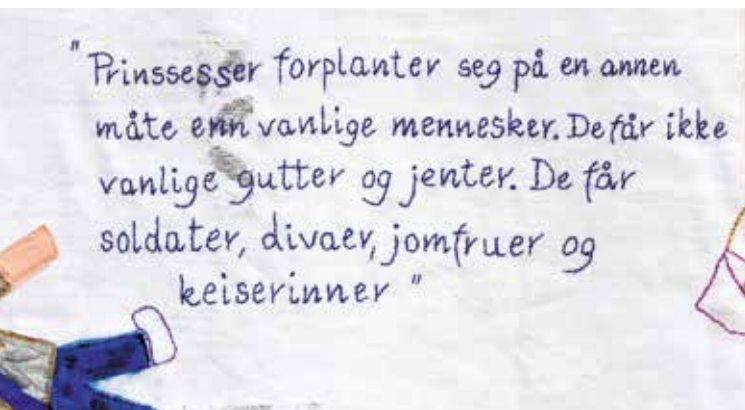 " Prinssesser forplanter seg på en annen
måte enn vanlige mennesker. De får ikke
vanlige gutter og jenter. De får
soldater, divaer, jomfruer og
keiserinner "